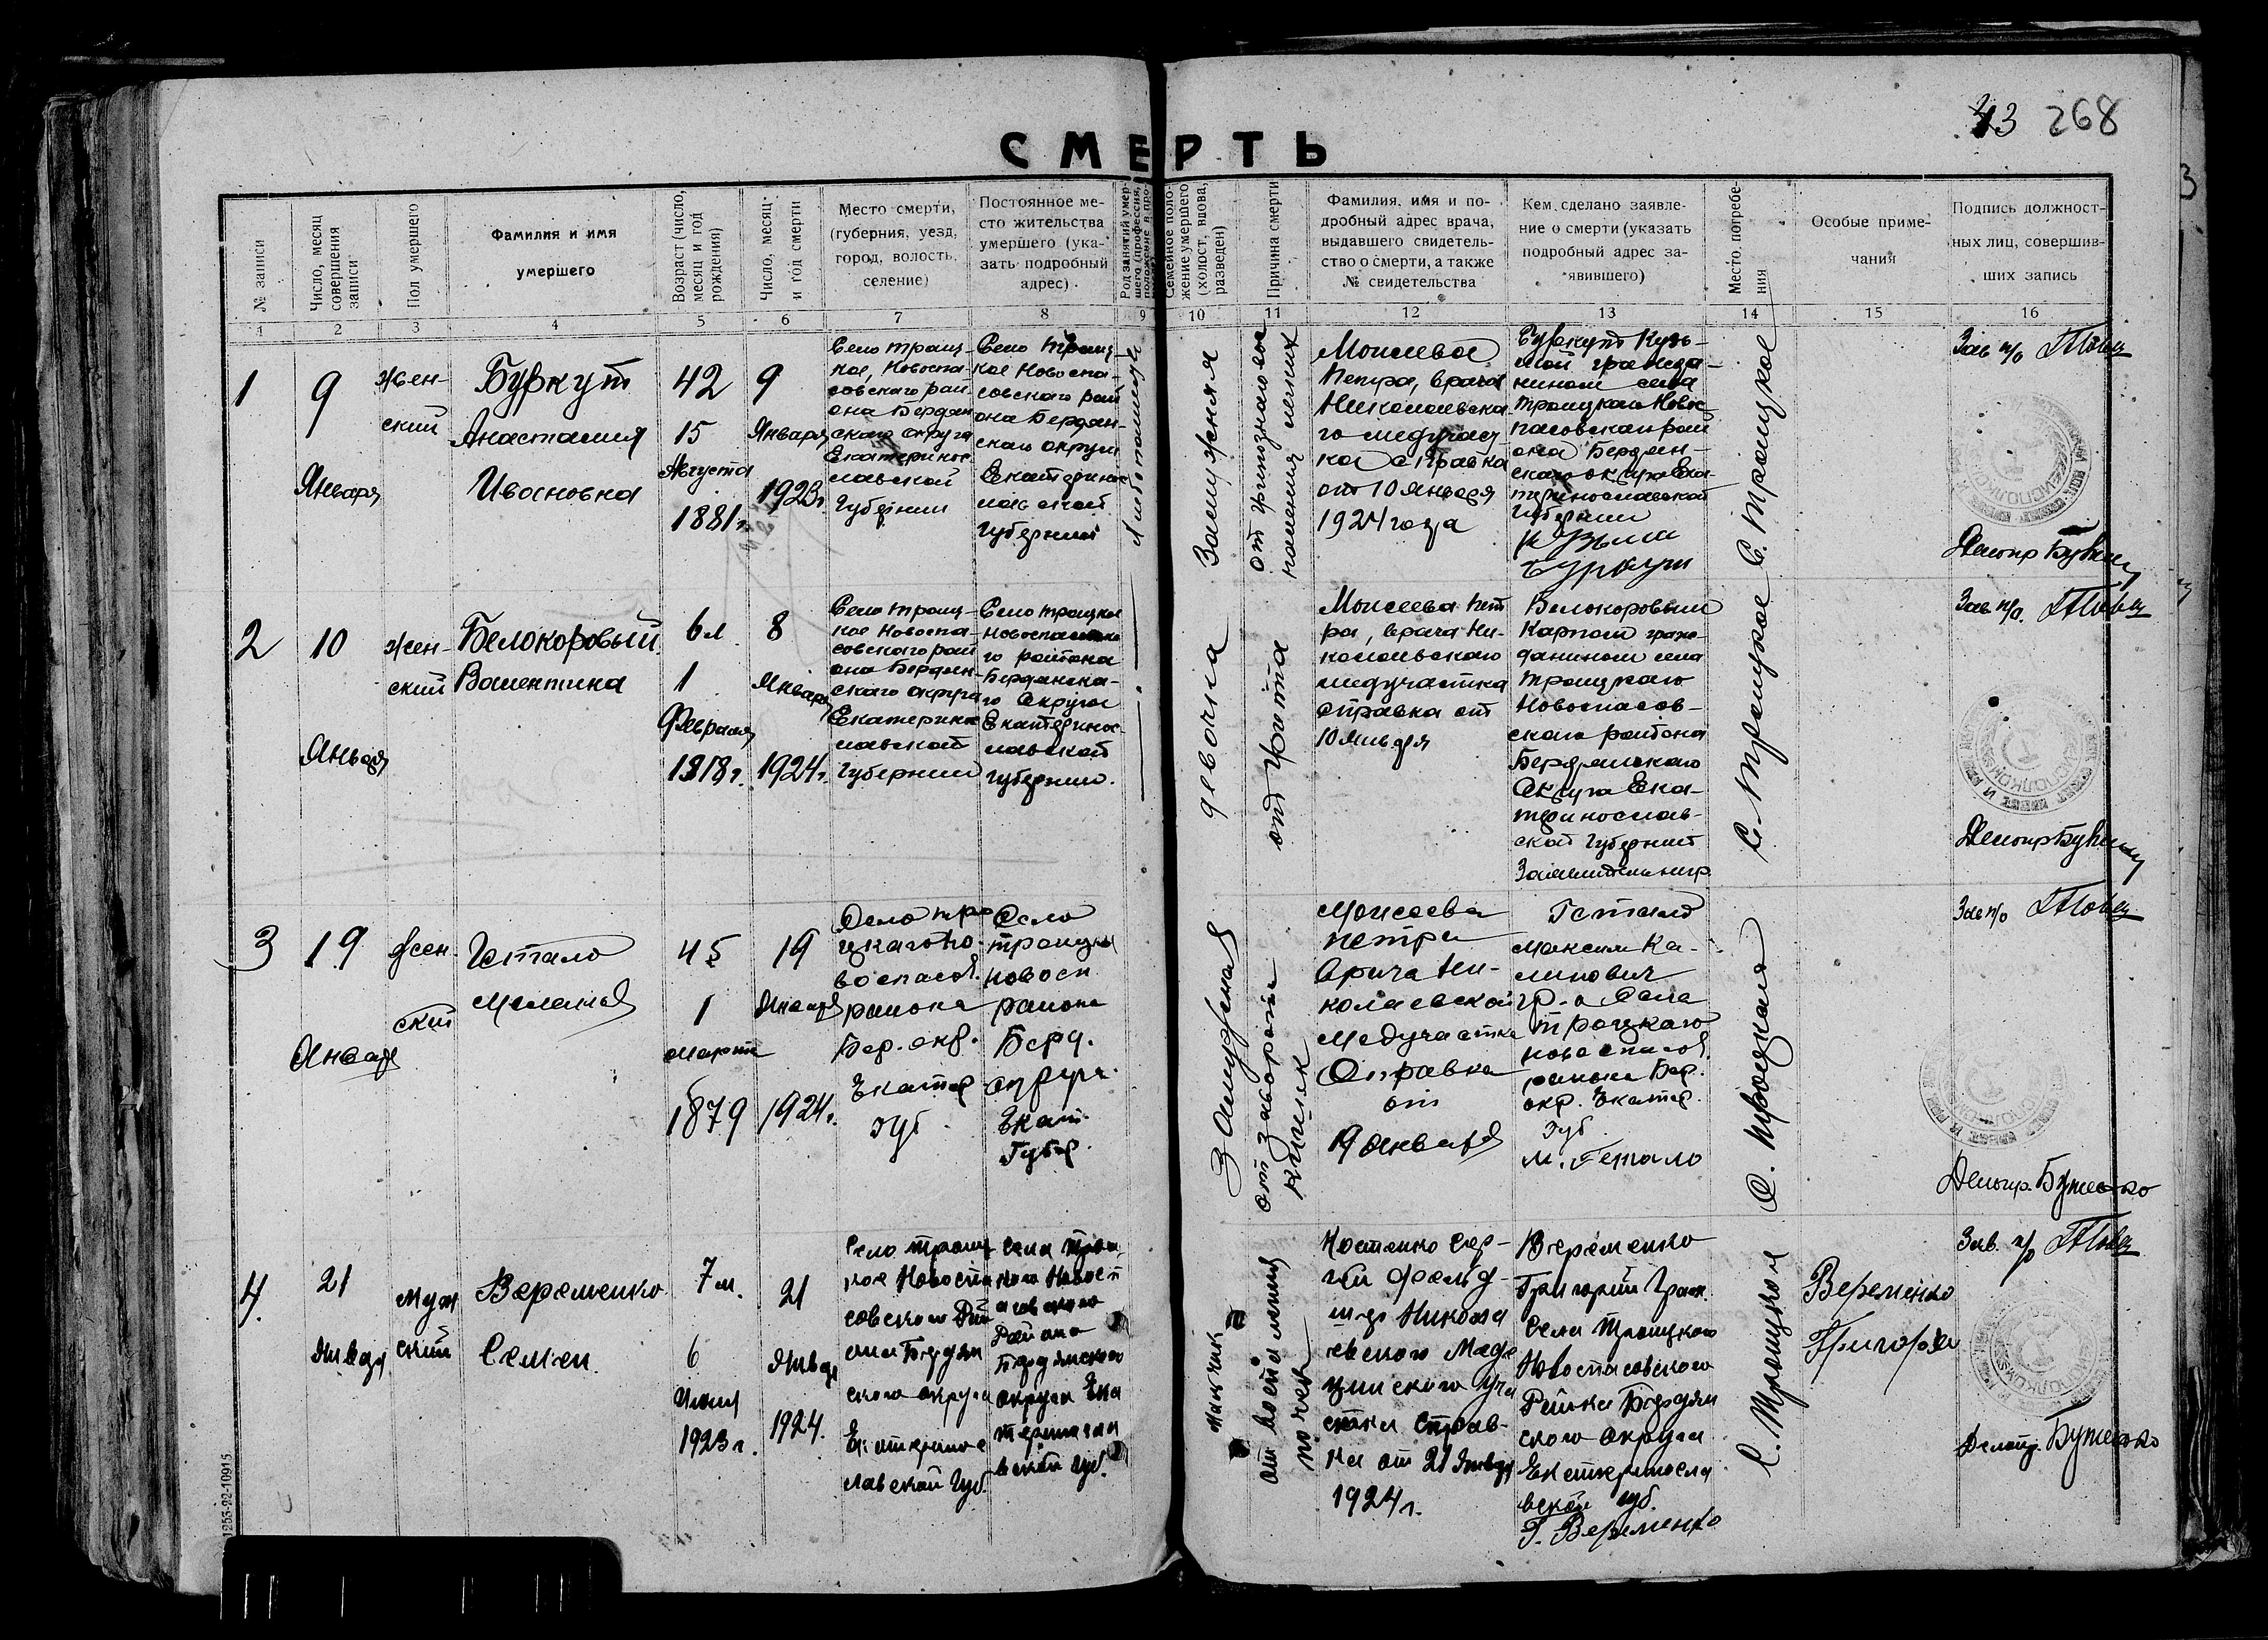 43 268
СМЕРТЬ
№ записи
Число, месяц совершения записи
Пол умершего
Фамилия и имя
умершего
Возраст (число, месяц и год рождения)
Число, месяц и год смерти
Место смерти,
(губерния, уезд,
город, волость,
селение)
Постоянное ме-
сто жительства
умершего (ука-
зать подробный
адрес)
Род занятий умер-
шего (профессия,
положение в про-
Семейное поло-
жение умершего
(холост, вдова,
разведен)
Причина смерти
Фамилия, имя и по-
дробный адрес врача,
выдавшего свидетель-
ство о смерти, а также
№ свидетельства
Кем сделано заявле-
ние о смерти (указать
подробный адрес за-
явившего)
Место погребе-
ния
Особые приме-
чания
Подпись должност-
ных лиц, совершив-
ших запись
1 2 3 4 5 6 7 8 9 10 11 12 13 14 15 16
1
9
Января
жен-
ский
Буркут
Анастасия
Ивановна
42
15
Августа
1881г.
9
Января
1923г.
Село Троиц-
кое, Новоспа-
совского рай
она Бердян
ского округа
Екатеринос
лавской
Губернии
Село Троиц-
кое Новоспа-
совского рай
она Бердян-
ского округа
Екатеринос
лавской
Губернии
Замужняя
Моисеева
Петра, врача
Николаевска
го медучаст
ка справка
от 10 января
1924 года
Буркут Кузь-
мой гражда-
нином села
Троицкаго Новос
пасовскаго рай
она Бердян-
скаго округа Ека-
теринославской
Губернии
Кузьма
Буркут
С. Троицкое
Зав п/о
2
10
Января
жен-
ский
Белокоровый
Валентина
6л
1
Февраля
1918г.
8
Января
1924г.
Село Троиц-
кое Новоспа-
совского рай
она Бердян-
ского округа
Екатеринос
лавской
Губернии
Село Троицкое
Новоспасовско
го района
Бердянско-
го Округа
Екатеринос-
лавской
губернии.
девочка
Моисеева Пет
ра, врача Ни-
колаевскаго
медучастка
справка от
10 января
Белокоровым
Карпом граж-
данином села
Троицкаго
Новоспасов-
скаго района
Бердянскаго
Округа Ека-
теринослав-
ской Губернии
С. Троицкое
Зав п/о.
3
19
Января
жен-
ский
45
1
марта
1879
19
Января
1924г.
Село Тро
ицкаго Но-
воспасов.
района
Бер. окр.
Екатер
губ
Село
Троицк
новосп
района
Берд.
округа.
Екат.
Губер.
Замужняя
от заворота
кишек
Моисеева
петра
врача Ни-
колаевской
медучастка
Справка
от
19 января
Максим Ка-
линович
гр-н Села
Троицкаго
новоспасов.
района Бер.
окр. Екатер.
губ
С. Троицкая
Зав п/о
Делопр. Бутенко
4.
21
Январ
муж
ский
Веременко
Семен.
7м.
6
Июня
1923г.
21
Январ
1924.
Село Троиц
кое Новоспа
совского Рай
она Бердян
ского округа
Екатеринос
лавской Губ.
Села Трои
кого Новосп
асовского
Района
Бердянского
округа Ека
теринослав
вской Губ.
мальчик
от воспаления
почек
Костенко Сер-
гей фельд-
шер Никола
евского Меди
цинского уча
стка Справ-
ка от 21 Январ
1924г.
Веременко
Григорий Граж.
Села Троицкого
Новоспасовского
Района Бердян
ского округа
Екатериносла
вской губ.
Г. Веременко
С. Троицкое
Веременко
Григорий
Зав. п/о
Делопр. Бутенко
1253-22-10915